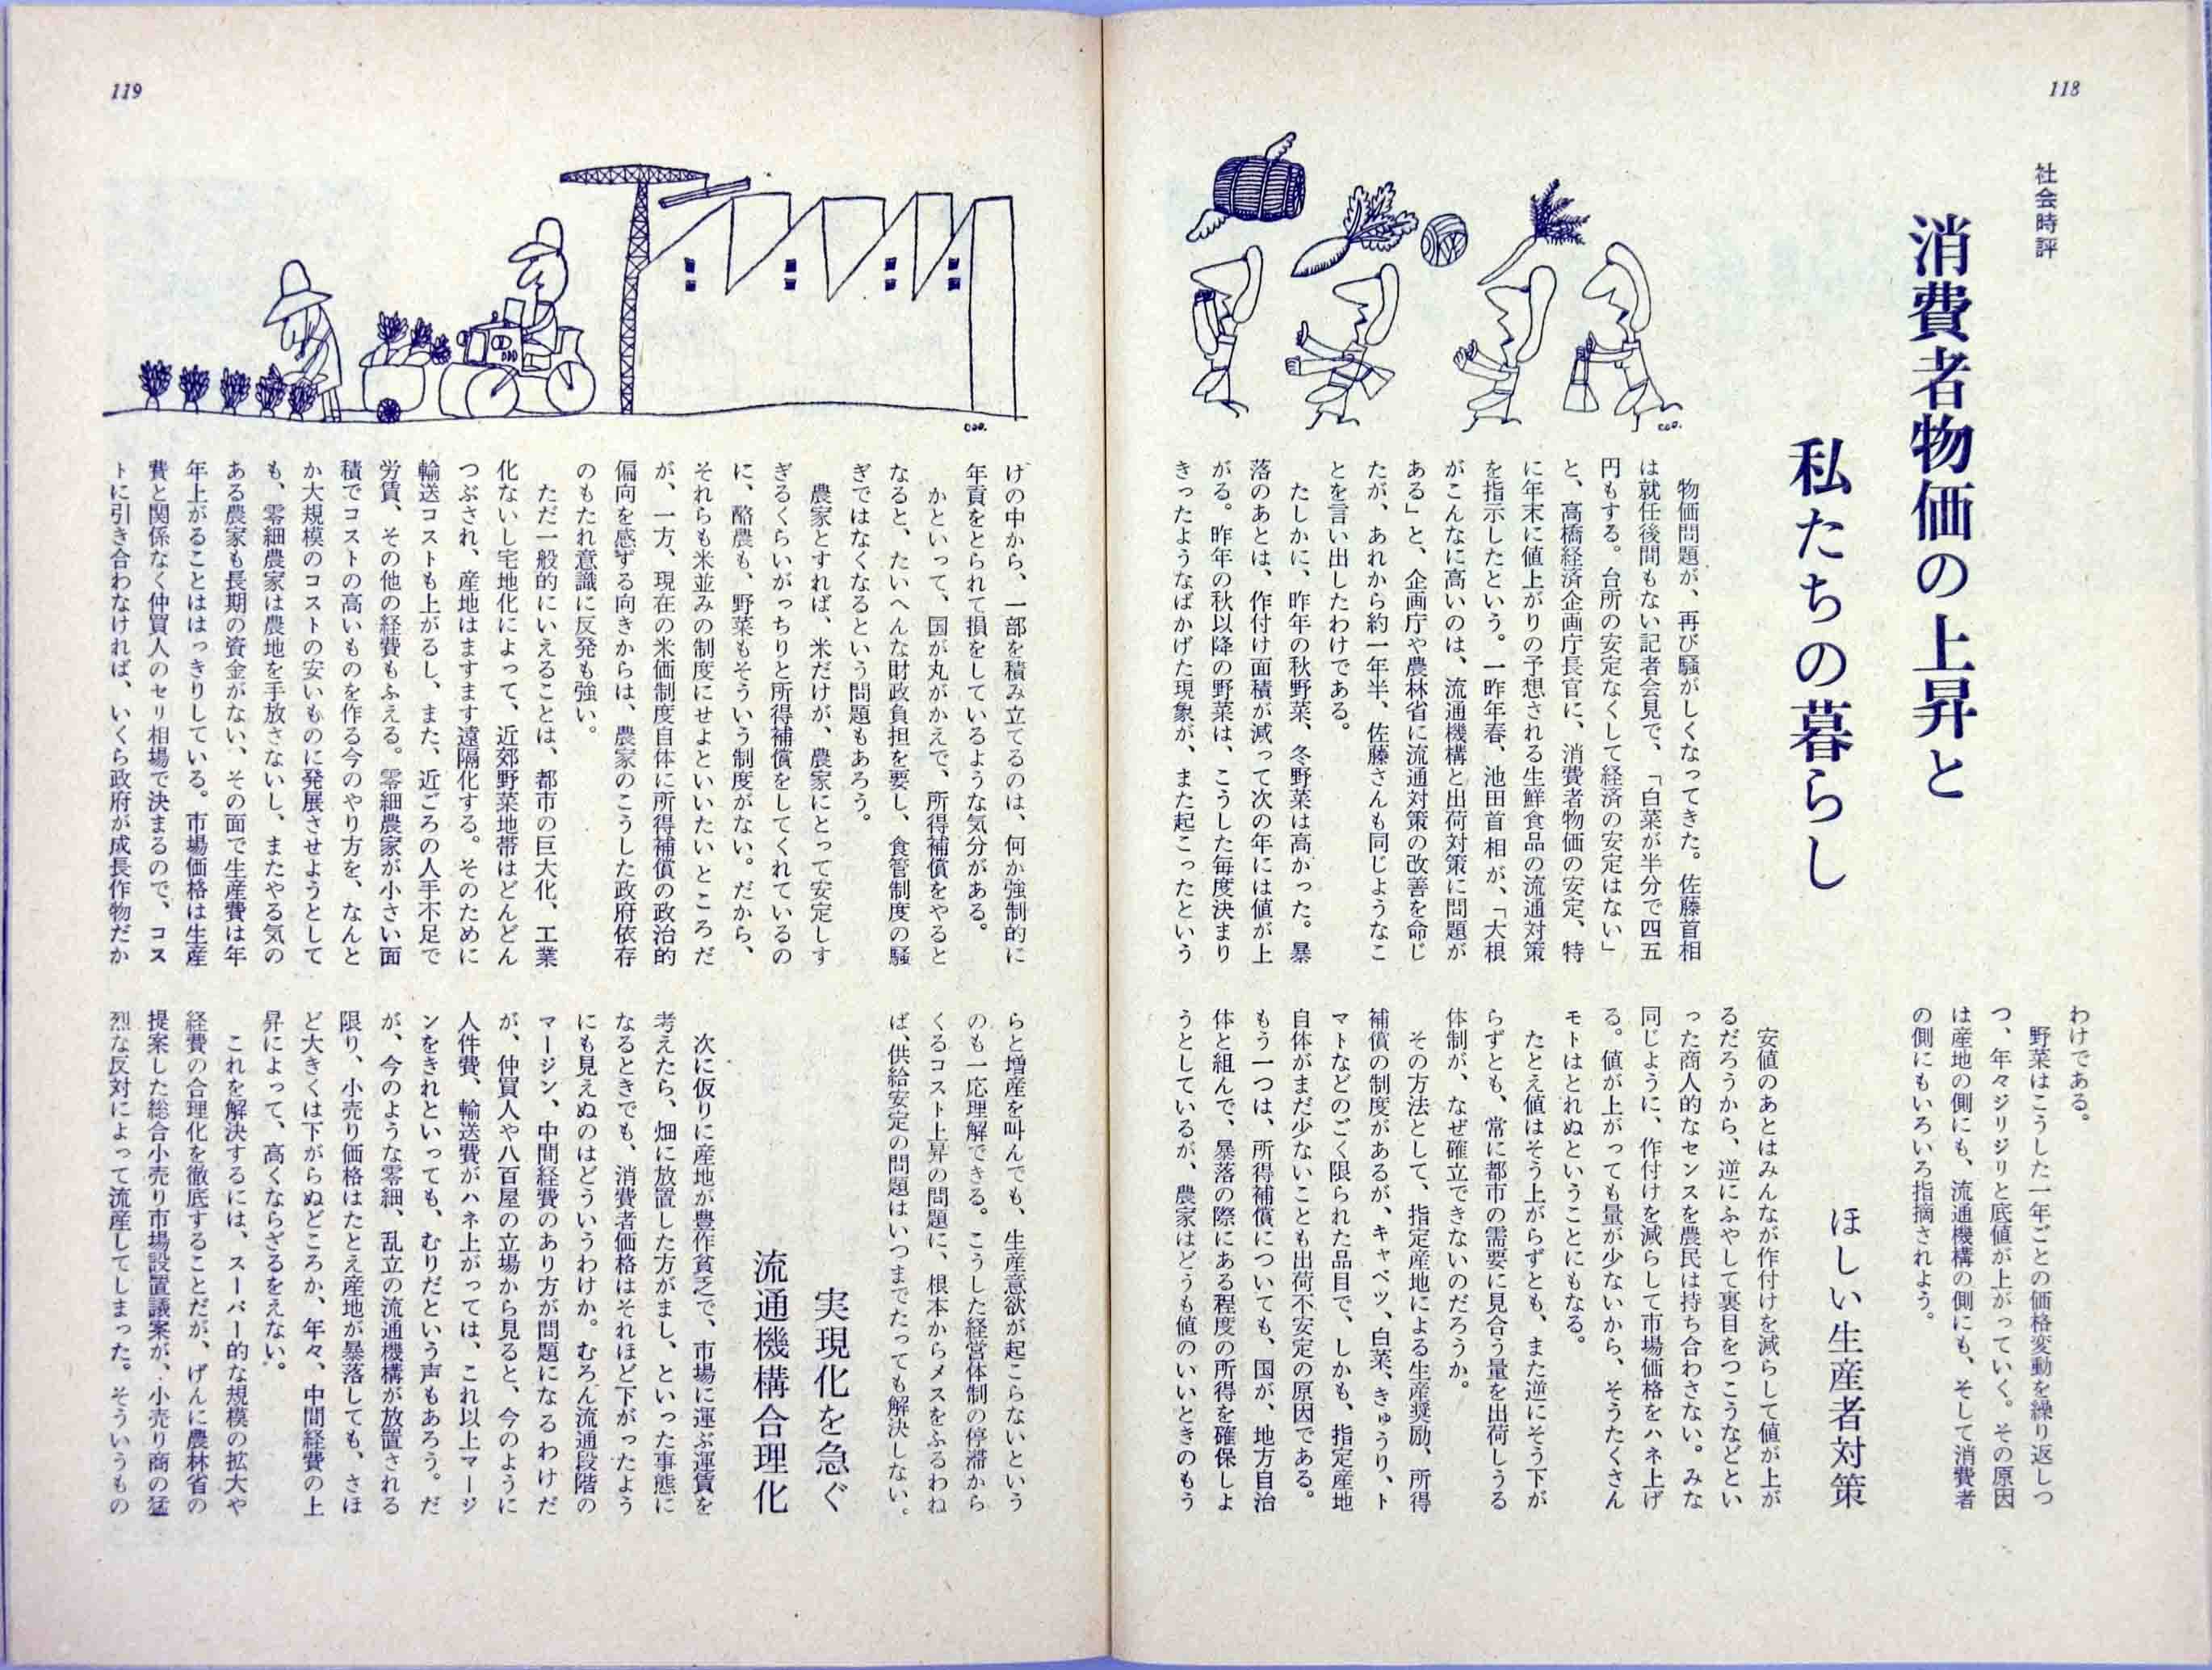 118
社会時評
消費者物価の上昇と
私たちの暮らし
物価問題が、再び騒がしくなってきた。佐藤首相
は就任後間もない記者会見で、「白菜が半分で四五
円もする。台所の安定なくして経済の安定はない」
と、高橋経済企画庁長官に、消費者物価の安定、特
に年末に値上がりの予想される生鮮食品の流通対策
を指示したという。一昨年春、池田首相が、「大根
がこんなに高いのは、流通機構と出荷対策に問題が
ある」と、企画庁や農林省に流通対策の改善を命じ
たが、あれから約一年半、佐藤さんも同じようなこ
とを言い出したわけである。
たしかに、昨年の秋野菜、冬野菜は高かった。暴
落のあとは、作付け面積が減って次の年には値が上
がる。昨年の秋以降の野菜は、こうした毎度決まり
きったようなばかげた現象が、また起こったという
わけである。
野菜はこうした一年ごとの価格変動を繰り返しつ
つ、年々ジリジリと底値が上がっていく。その原因
は産地の側にも、流通機構の側にも、そして消費者
の側にもいろいろ指摘されよう。
ほしい生産者対策
安値のあとはみんなが作付けを減らして値が上が
るだろうから、逆にふやして裏目をつこうなどとい
った商人的なセンスを農民は持ち合わさない。みな
同じように、作付けを減らして市場価格をハネ上げ
る。値が上がっても量が少ないから、そうたくさん
モトはとれぬということにもなる。
たとえ値はそう上がらずとも、また逆にそう下が
らずとも、常に都市の需要に見合う量を出荷しうる
体制が、なぜ確立できないのだろうか。
その方法として、指定産地による生産奨励、所得
補償の制度があるが、キャベツ、白菜、きゅうり、ト
マトなどのごく限られた品目で、しかも、指定産地
自体がまだ少ないことも出荷不安定の原因である。
もう一つは、所得補償についても、国が、地方自治
体と組んで、暴落の際にある程度の所得を確保しよ
うとしているが、農家はどうも値のいいときのもう
119
けの中から、一部を積み立てるのは、何か強制的に
年貢をとられて損をしているような気分がある。
かといって、国が丸がかえで、所得補償をやると
なると、たいへんな財政負担を要し、食管制度の騒
ぎではなくなるという問題もあろう。
農家とすれば、米だけが、農家にとって安定しす
ぎるくらいがっちりと所得補償をしてくれているの
に、酪農も、野菜もそういう制度がない。だから、
それらも米並みの制度にせよといいたいところだ
が、一方、現在の米価制度自体に所得補償の政治的
偏向を感ずる向きからは、農家のこうした政府依存
のもたれ意識に反発も強い。
ただ一般的にいえることは、都市の巨大化、工業
化ないし宅地化によって、近郊野菜地帯はどんどん
つぶされ、産地はますます遠隔化する。そのために
輸送コストも上がるし、また、近ごろの人手不足で
労賃、その他の経費もふえる。零細農家が小さい面
積でコストの高いものを作る今のやり方を、なんと
か大規模のコストの安いものに発展させようとして
も、零細農家は農地を手放さないし、またやる気の
ある農家も長期の資金がない、その面で生産費は年
年上がることははっきりしている。市場価格は生産
費と関係なく仲買人のセリ相場で決まるので、コス
トに引き合わなければ、いくら政府が成長作物だか
らと増産を叫んでも、生産意欲が起こらないという
のも一応理解できる。こうした経営体制の停滞から
くるコスト上昇の問題に、根本からメスをふるわね
ば、供給安定の問題はいつまでたっても解決しない。
実現化を急ぐ
流通機構合理化
次に仮りに産地が豊作貧乏で、市場に運ぶ運賃を
考えたら、畑に放置した方がまし、といった事態に
なるときでも、消費者価格はそれほど下がったよう
にも見えぬのはどういうわけか。むろん流通段階の
マージン、中間経費のあり方が問題になるわけだ
が、仲買人や八百屋の立場から見ると、今のように
人件費、輸送費がハネ上がっては、これ以上マージ
ンをきれといっても、むりだという声もあろう。だ
が、今のような零細、乱立の流通機構が放置される
限り、小売り価格はたとえ産地が暴落しても、さほ
ど大きくは下がらぬどころか、年々、中間経費の上
昇によって、高くならざるをえない。
これを解決するには、スーパー的な規模の拡大や
経費の合理化を徹底することだが、げんに農林省の
提案した総合小売り市場設置議案が、小売り商の猛
烈な反対によって流産してしまった。そういうもの